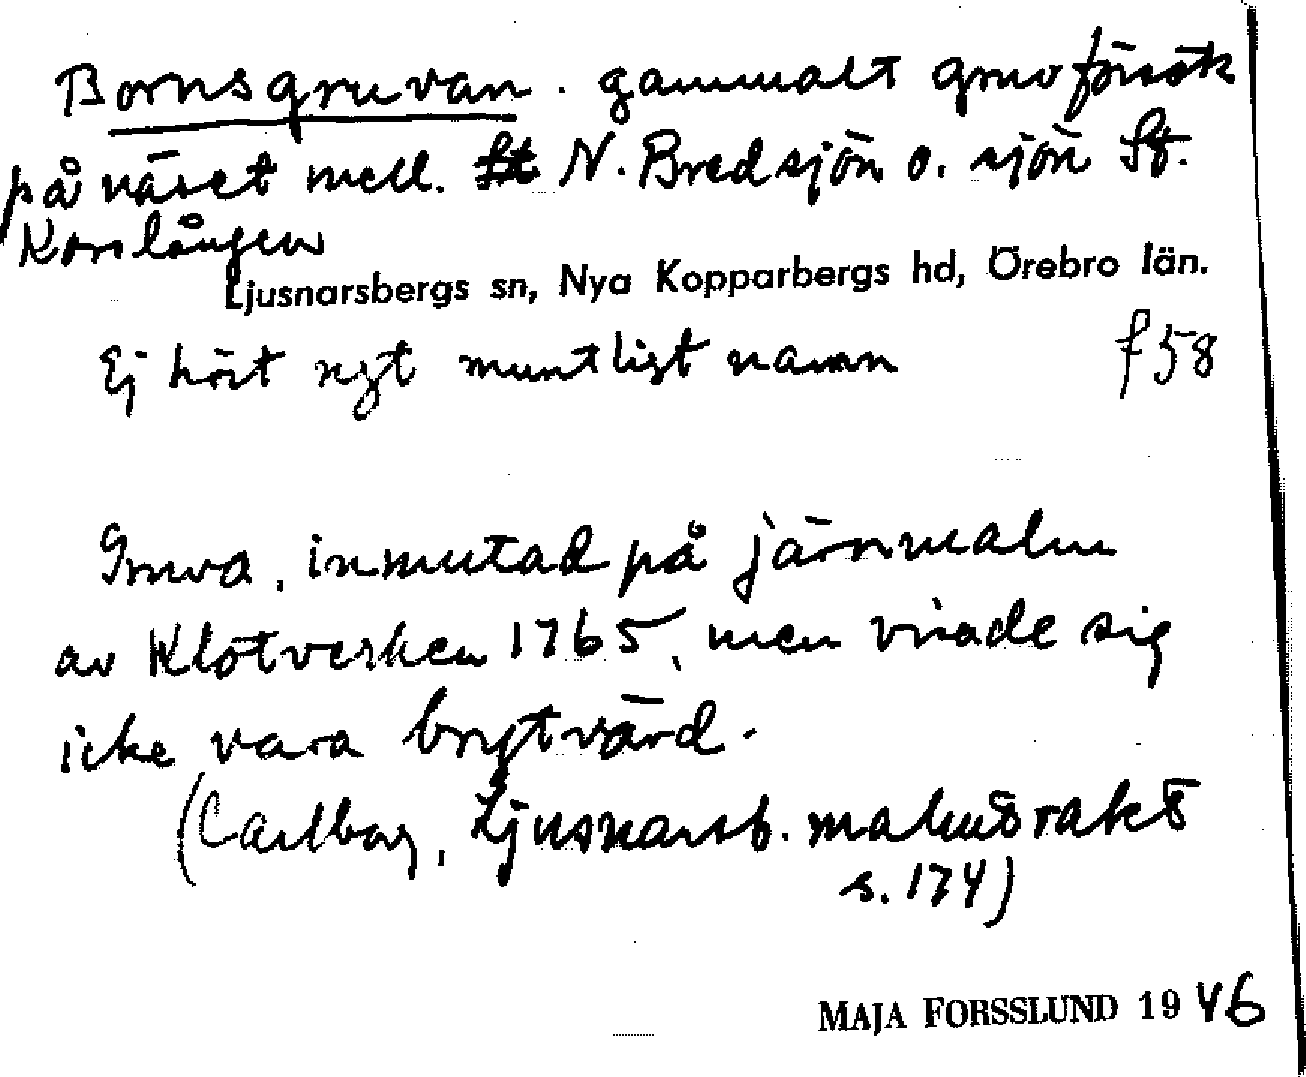 Bornsgruvan. gammalt gruvförsök
på näset mell. N. Bredsjön o. sjön St.
Korslången
Ljusnarsbergs sn, Nya Kopparbergs hd, Örebro län.
Ej hört ngt muntligt namn f58
Gruva, inmutad på järnmalm
av Klotverken 1765, men visade sig
icke vara brytvärd.
(Carlborg, Ljusnarsb. malmtrakt
s. 174)
MAJA FORSSLUND 1946